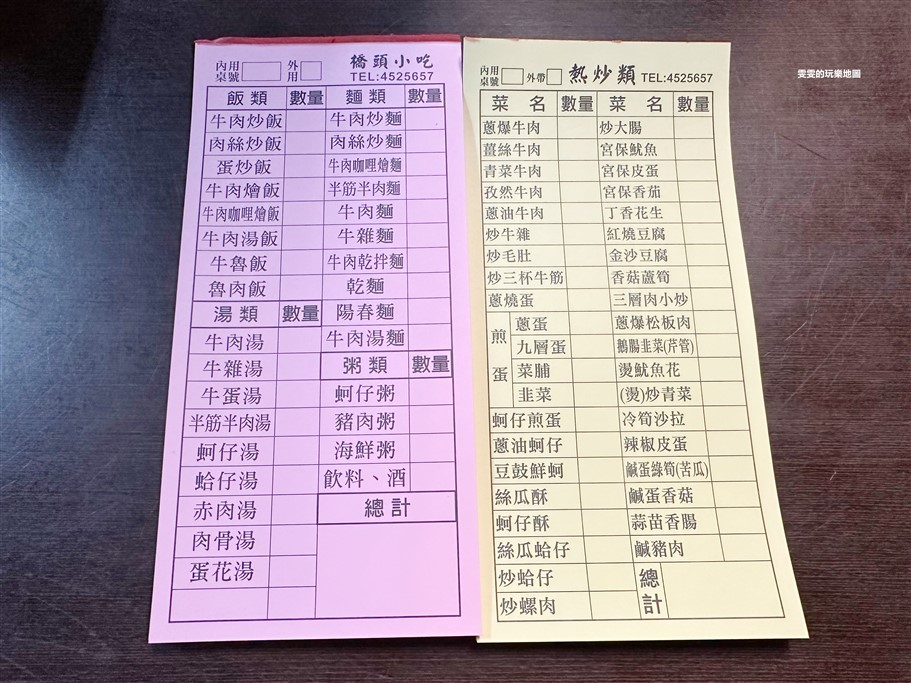 內用桌號 外用 橋頭小吃
TEL:4525657
飯類 數量 麵類 數量
牛肉炒飯 牛肉炒麵
肉絲炒飯 肉絲炒麵
蛋炒飯 牛肉咖哩燴麵
牛肉燴飯 半筋半肉麵
牛肉咖哩燴飯 牛肉麵
牛肉湯飯 牛雜麵
牛魯飯 牛肉乾拌麵
魯肉飯 乾麵
湯類 數量 陽春麵
牛肉湯 牛肉湯麵
牛雜湯 粥類 數量
牛蛋湯 蚵仔粥
半筋半肉湯 豬肉粥
蚵仔湯 海鮮粥
蛤仔湯 飲料、酒
赤肉湯 總計
肉骨湯
蛋花湯
內用桌號 外帶 熱炒類 TEL:4525657
菜名 數量 菜名 數量
蔥爆牛肉 炒大腸
薑絲牛肉 宮保魷魚
青菜牛肉 宮保皮蛋
孜然牛肉 宮保香茄
蔥油牛肉 丁香花生
炒牛雜 紅燒豆腐
炒毛肚 金沙豆腐
炒三杯牛筋 香菇蘆筍
蔥燒蛋 三層肉小炒
煎蛋 蔥蛋 蔥爆松板肉
九層蛋 鵝腸韭菜(芹管)
菜脯 燙魷魚花
韭菜 (燙)炒青菜
蚵仔煎蛋 冷筍沙拉
蔥油蚵仔 辣椒皮蛋
豆鼓鮮蚵 鹹蛋綠筍(苦瓜)
絲瓜酥 鹹蛋香菇
蚵仔酥 蒜苗香腸
絲瓜蛤仔 鹹豬肉
炒蛤仔 總計
炒螺肉
雯雯的玩樂地圖